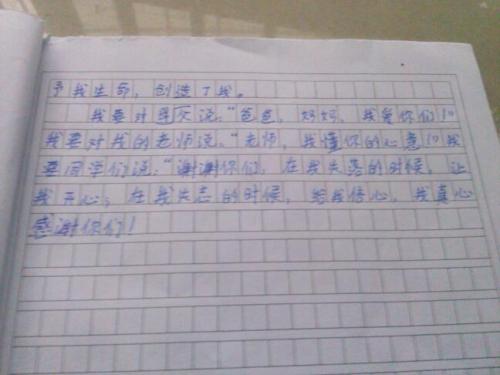 予我生命，创造了我。
我要对母父说：“爸爸，妈妈，我爱你们！”
我要对我的老师说：“老师，我懂你的心意！”我
要同学们说：“谢谢你们，在我失落的时候，让
我开心；在我失志的时候，给我信心，我真心
感谢你们！